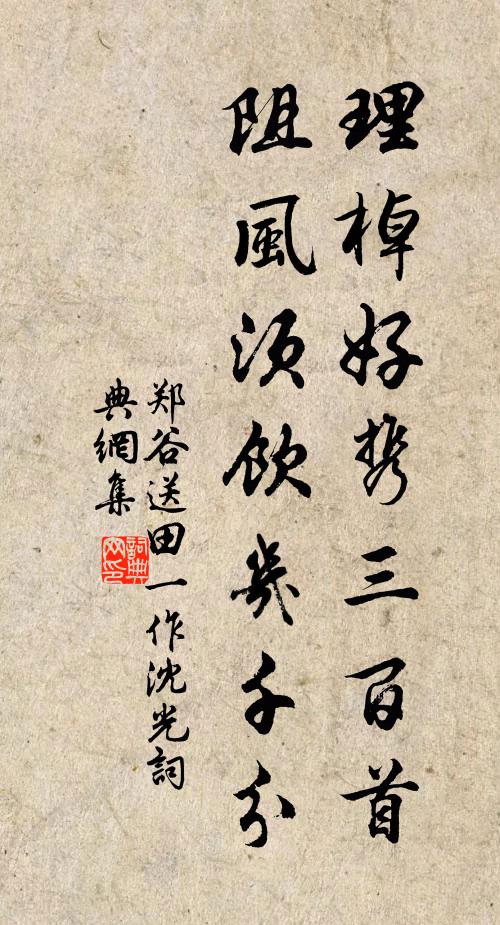 理棹好携三百首
阻風須飲幾千分
郑谷送田一作沈光詞
典網集
詞典
网印